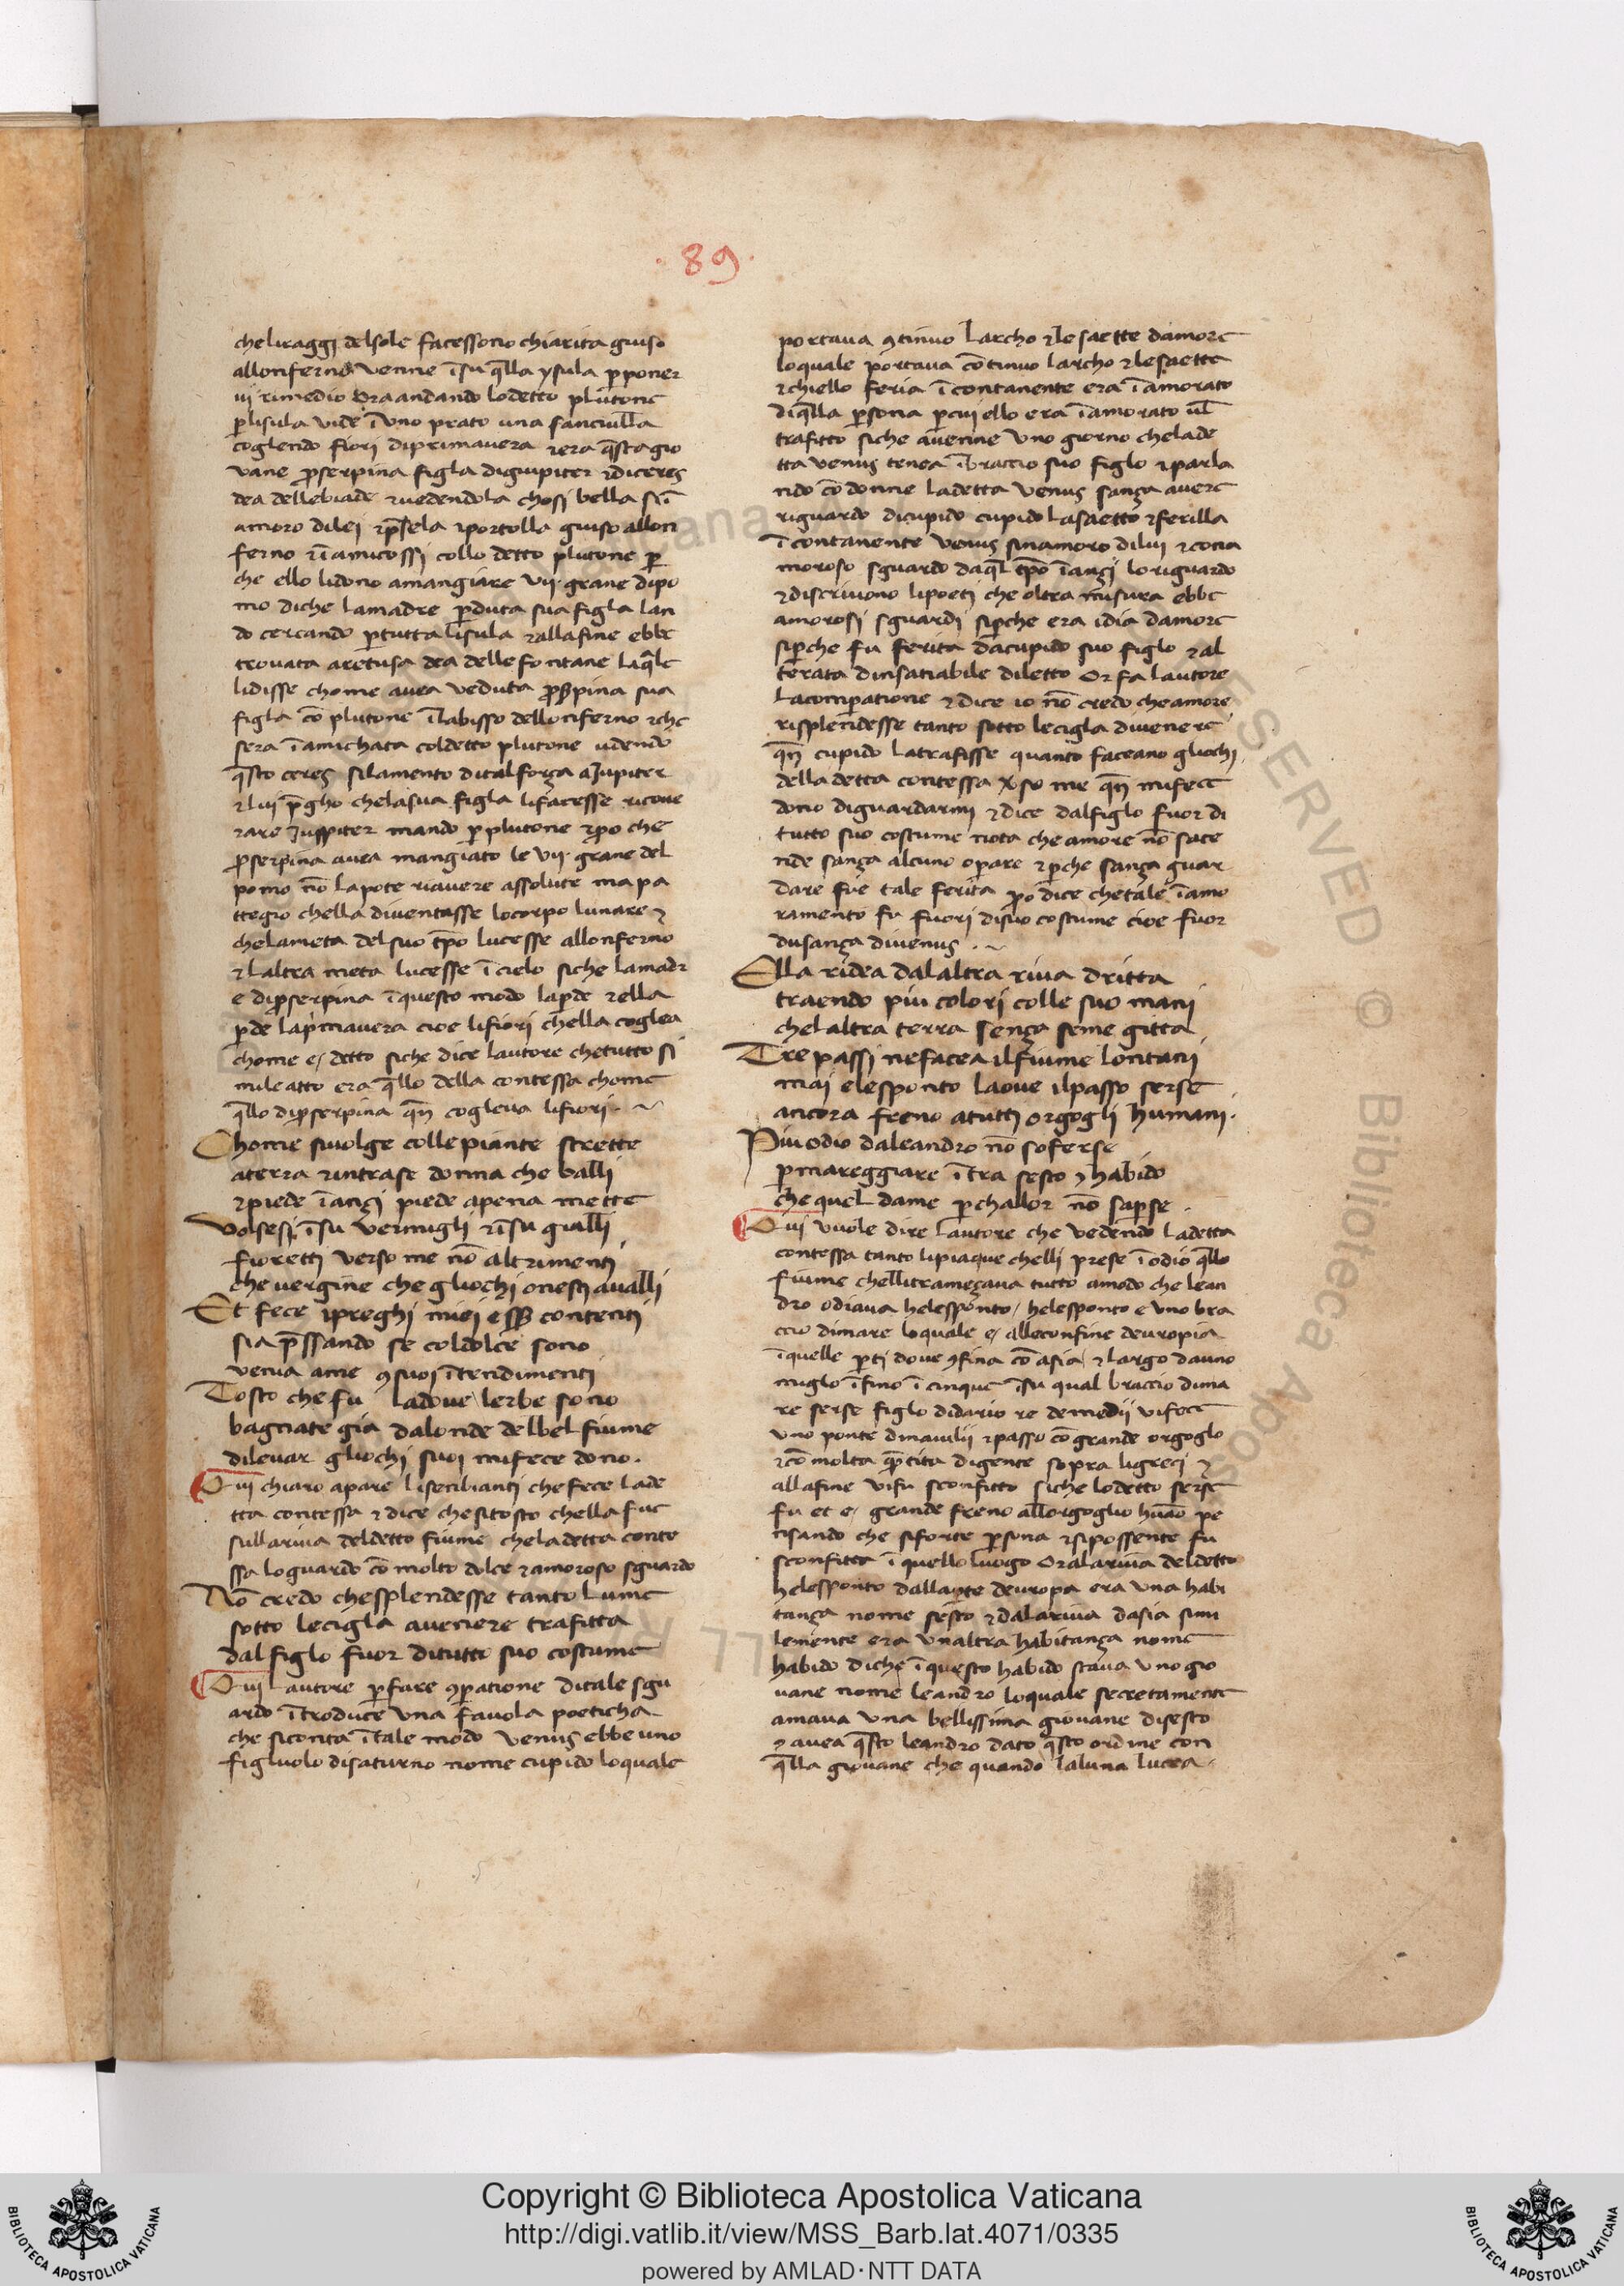 89
che li raggi del sole facessono chiarita giuso
allonferno venne ī su q̄lla ysula p̱ poner
ui rimedio Ora andando lo detto plutone
p̱ lisula vide ī uno prato una fanciulla
coglendo fiori di primavera ⁊ era q̄sta gio
vane p̱serpina figla di giupiter ⁊ di ceres
dea delle biade ⁊ vedendola chosi bella si ī
amoro di lei ⁊ p̄sela ⁊ portolla giuso allon
ferno ⁊ ī amicossi collo detto plutone p̱
che ello li dono a mangiare vii· grane di po
mo di che la madre p̱duta sua figla lan
do cercando p̱ tutta lisula ⁊ alla fine ebbe
trovata aretusa dea delle fontane la q̄le
li disse chome avea veduta p̱s̱pina sua
figla cō plutone ī labisso dellonferno ⁊ che
sera ī amichata col detto plutone udendo
q̄sto ceres si lamento di tal forza a Jupiter
⁊ lui p̄gho che la sua figla li facesse ricove
rare Juppiter mando p̱ plutone ⁊ p̱o che
p̱serpina avea mangiato le vii· grane del
pomo nō la pote riavere assolute ma pa
ttegio chella diventasse lo corpo lunare ⁊
che la meta del suo tp̄o lucesse allonferno
⁊ laltra meta lucesse ī cielo siche la madr
e di p̱serpina ī questo modo la p̱de ⁊ ella
p̱de la p̱mavera cioe li fiori chella coglea
chome e/ detto siche dice lautore che tutto si
mile atto era q̄llo della contessa chome
q̄llo di p̱serpina qn̄ cogleva li fiori· ~
Chome svolge colle piante strette
a terra ⁊ intra se donna che balli
⁊ piede īanzi piede apena mette
Volsesi ī su vermigli ⁊ ī su gialli
fioretti verso me nō altrimenti
che vergine che gluochi onesti avalli
Et fece i preghi miei ess̱ contenti
si ap̄ssando se col dolce sono
venia ame ꝯ suoi ītendimenti
Tosto che fu la dove lerbe sono
bagnate gia da londe del bel fiume
di levar gluochi suoi mi fece dono·
Qui chiaro apare li senbianti che fece la de
tta contessa ⁊ dice che si tosto chella fue
sulla riva del detto fiume che la detta conte
ssa lo guardo cō molto dolce ⁊ amoroso sguardo
Nō credo che splendesse tanto lume
sotto le cigla a venere trafitta
dal figlo fuor di tutto suo costume
Qui lautore p̱ fare ꝯp̱atione di tale sgu
ardo ītroduce una favola poeticha
che si conta ī tale modo Venus ebbe uno
figluolo di saturno nome cupido lo quale
portava ꝯtinuo larcho ⁊ le saette damore
lo quale portava cōtinuo larcho ⁊ le saette
⁊ chi ello feria ī contanente era ī amorato
di q̄lla p̱sona p̱ cui ello era ī amorato
trafitto siche avenne uno giorno che la de
tta venus tenea ī braccio suo figlo ⁊ parla
ndo cō donne la detta venus sanza avere
riguardo di cupido cupido la saetto ⁊ ferilla
ī contanente venus sinamoro di lui ⁊ con a
moroso sguardo da q̄l tp̄o īanzi lo riguardo
⁊ discrivono li poeti che oltra misura ebbe
amorosi sguardi si p̱che era idia damore
si p̱che fu ferita da cupido suo figlo ⁊ al
terata dinsatiabile diletto Or fa lautore
la comp̱atione ⁊ dice io nō credo che amore
risplendesse tanto sotto le cigla di venere
qn̄ cupido la trafisse quanto faceano gluochi
della detta contessa v̱so me qn̄ mi fece
dono di guardarmi ⁊ dice dal figlo fuor di
tutto suo costume nota che amore nō sace
nde sanza alcuno op̱are ⁊ p̱che sanza guar
dare fue tale ferita p̱o dice che tale īamo
ramento fu fuori di suo costume cioe fuor
dusanza di venus · ~
Ella ridea da laltra riva dritta
traendo piu colori colle suo mani
che laltra terra senza seme gitta
Tre passi ne facea il fiume lontani
mai elesponto la ove il passo serse
ancora freno a tutti orgogli humani·
Piu odio da leandro nō soferse
p̱ mareggiare ītra sesto ⁊ habido
che quel da me p̱ challor nō sap̱se ·
Qui vuole dire lautore che vedendo la detta
contessa tanto li piaque chelli prese ī odio q̄llo
fiume chelli tramezava tutto amodo che lean
dro odiava helesponto/ helesponto e uno bra
ccio di mare lo quale e/ alle confine deuropia
ī quelle p̱ti dove ꝯfina cō asia/ ⁊ largo da uno
miglo īfino ī cinque ī su qual braccio di ma
re serse figlo di dario re de medii vi fece
uno ponte di navilii ⁊ passo cō grande orgoglo
⁊ cō molta q̄ntita di gente sopra li greci ⁊
alla fine vi fu sconfitto siche lo detto serse
fu et e/ grande freno allorgoglio hūāo pe
nsando che si forte p̱sona ⁊ si possente fu
sconfitta ī quello luogo Or ala riva del detto
helesponto dalla p̱te deuropa era una habi
tanza nome sesto ⁊ dala riva dasia simi
lemente era unaltra habitanza nome
habido di che ī questo habido stava uno gio
vane nome leandro lo quale secretamente
amava una bellissima giovane di sesto
⁊ avea q̄sto leandro dato q̄sto ordine con
q̄lla giovane che quando la luna lucea·
Copyright © Biblioteca Apostolica Vaticana
http://digi.vatlib.it/view/MSS_Barb.lat.4071/0335
powered by AMLAD·NTT DATA
BIBLIOTECA APOSTOLICA VATICANA
BIBLIOTECA APOSTOLICA VATICANA